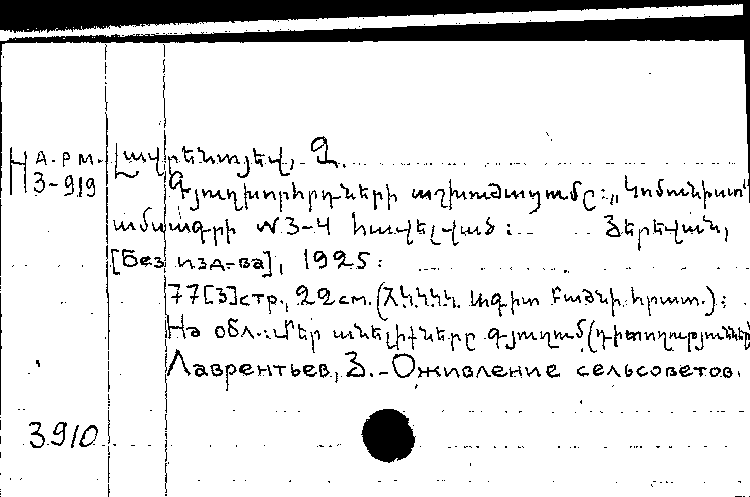 А.РМ. Լավրենտյեվ, Զ.
3-919 Գյուղխորհրդների աշխուժացումը: „Կոմունիստ"
ամսագրի №3-4 հավելված: Յերեվան,
[Без изд-ва], 1925:
77[3]стр., 22см. (ՀԿԿԿԿ Ագիտ Բաժնի հրատ.):
На обл.: Մեր անելիքները գյուղում (դիտողություններ
Лаврентьев, З. - Оживление сельсоветов.
3910